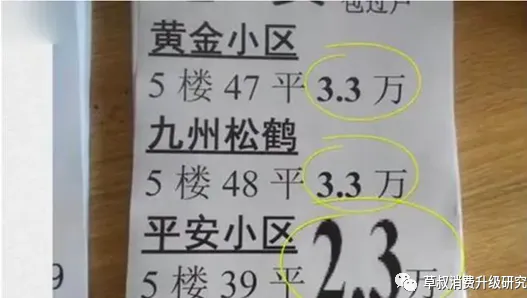 包过户
黄金小区
5 楼 47 平 3.3 万
九州松鹤
5 楼 48 平 3.3 万
平安小区
5 楼 39 平 2.3 万
9
草叔消费升级研究